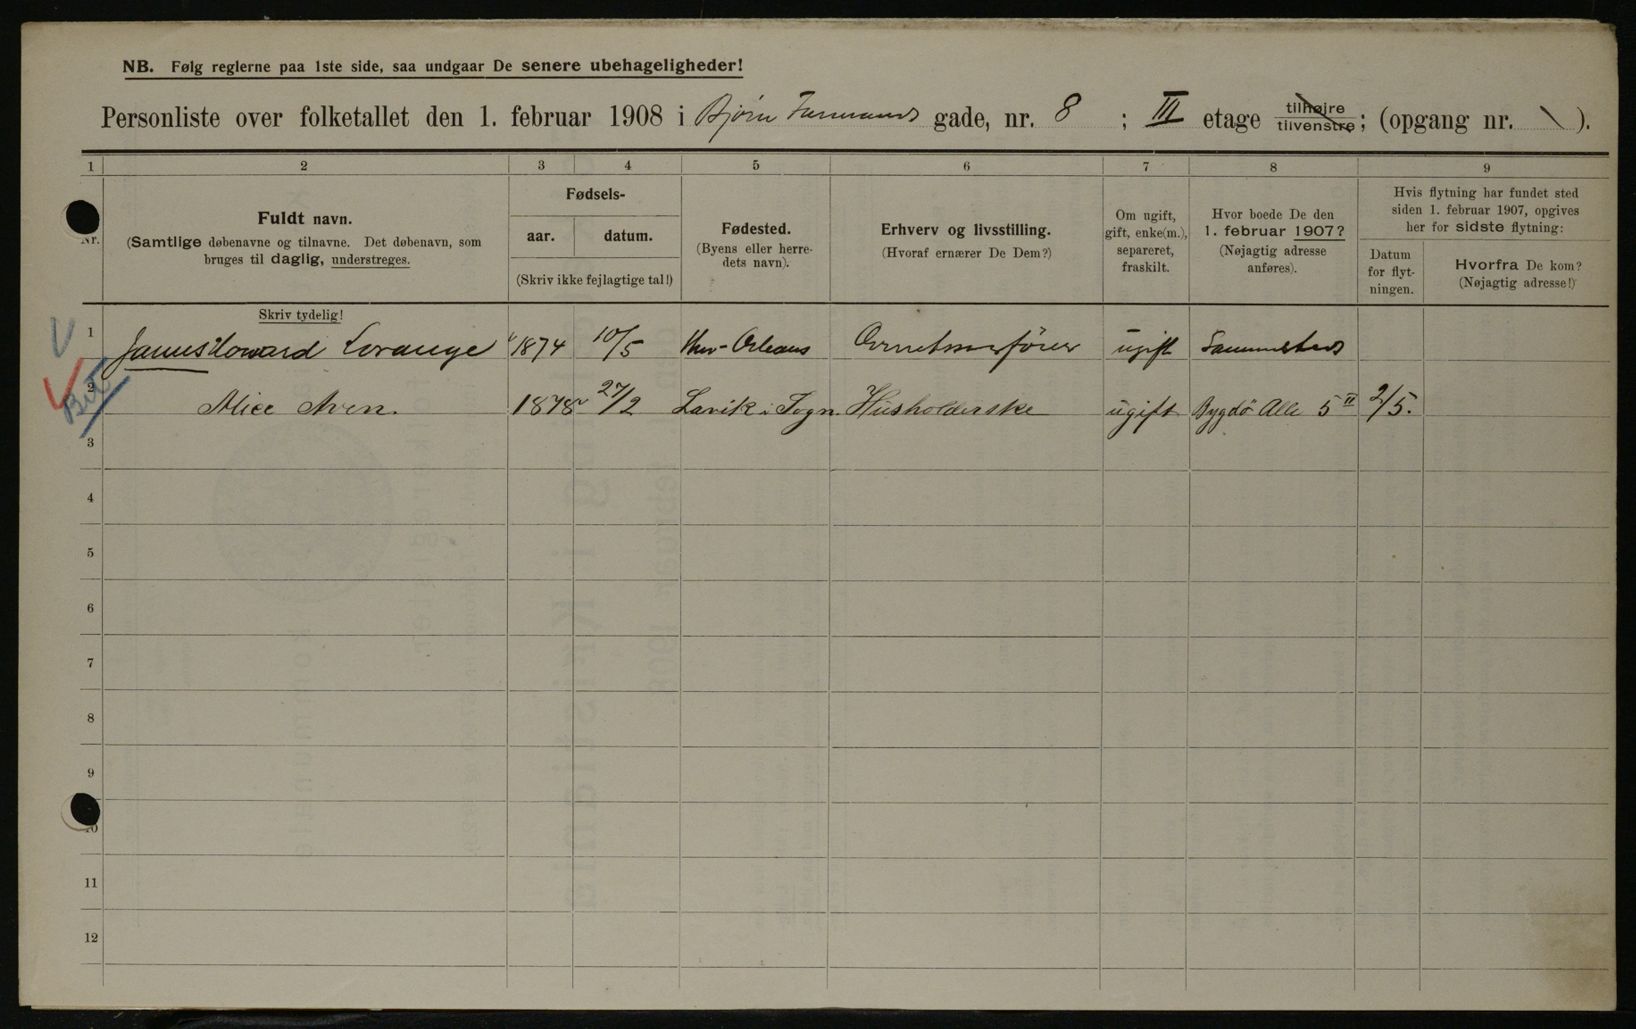 NB. Følg reglerne paa 1ste side, saa undgaar De senere ubehageligheder!
Personliste over folketallet den 1. februar 1908 i Bjørn Farmands gade, nr. 8 ; III etage tilhøire tilvenstre; (opgang nr. \ ).
1 2 3 4 5 6 7 8 9
Nr.
Fuldt navn.
(Samtlige døbenavne og tilnavne. Det døbenavn, som
bruges til daglig, understreges.
Fødsels-
aar. datum.
(Skriv ikke fejlagtige tal!)
Fødested.
(Byens eller herre-
dets navn).
Erhverv og livsstilling.
(Hvoraf ernærer De Dem?)
Om ugift,
gift, enke(m.),
separeret,
fraskilt.
Hvor boede De den
1. februar 1907?
(Nøjagtig adresse
anføres).
Hvis flytning har fundet sted
siden 1. februar 1907, opgives
her for sidste flytning:
Datum
for flyt-
ningen.
Hvorfra De kom?
(Nøjagtig adresse!)
Skriv tydelig!
1 James Howard Lorange 1874 10/5 New-Orleans ugift Sammesteds
2 Alice Aven. 1878 27/2 Lavik i Sogn. Husholderske ugift Bygdö Alle 5 II 2/5.
3
4
5
6
7
8
9
10
11
12